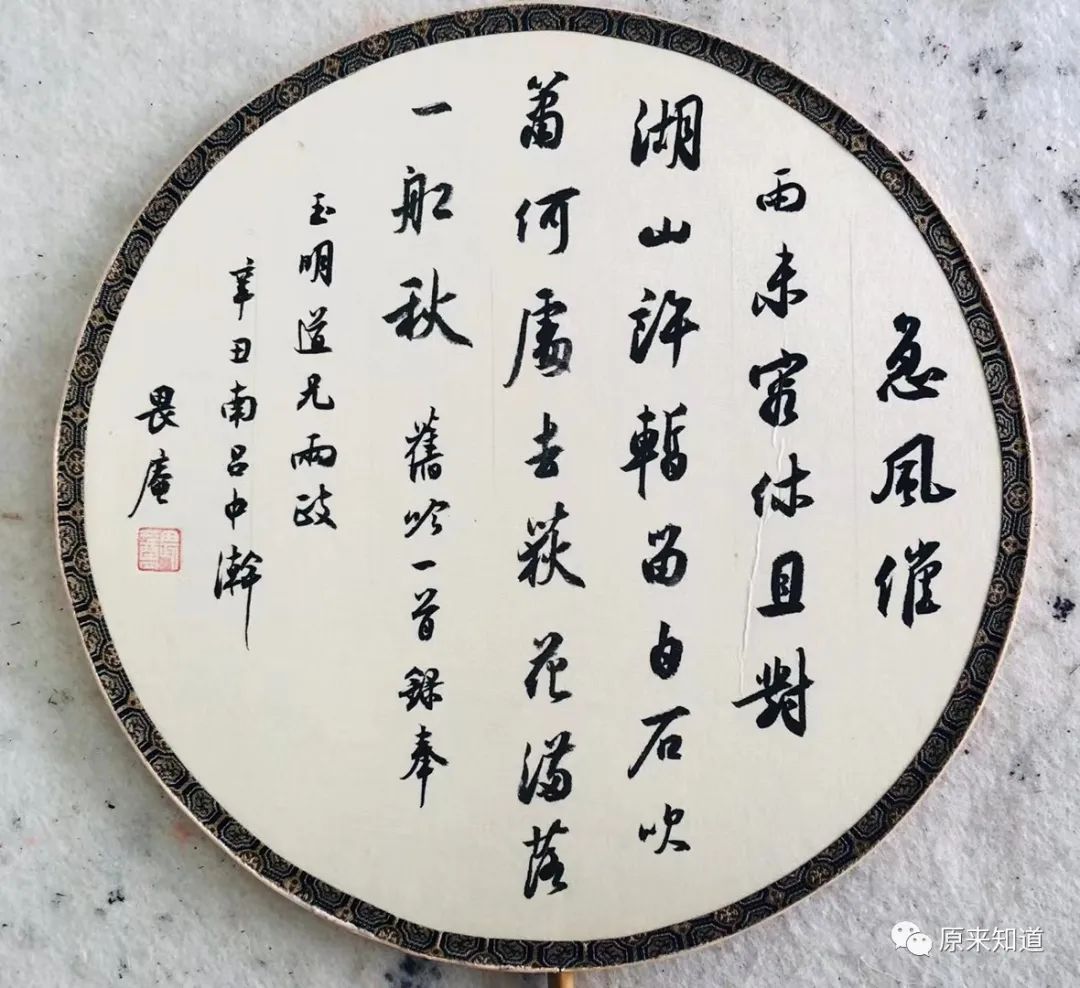 急風催
雨未容休且對
湖山許暫留白石吹
簫何處去荻花滿落
一船秋 舊吟一首錄奉
玉明道兄兩政
辛丑南呂中澣
畏庵
原来知道